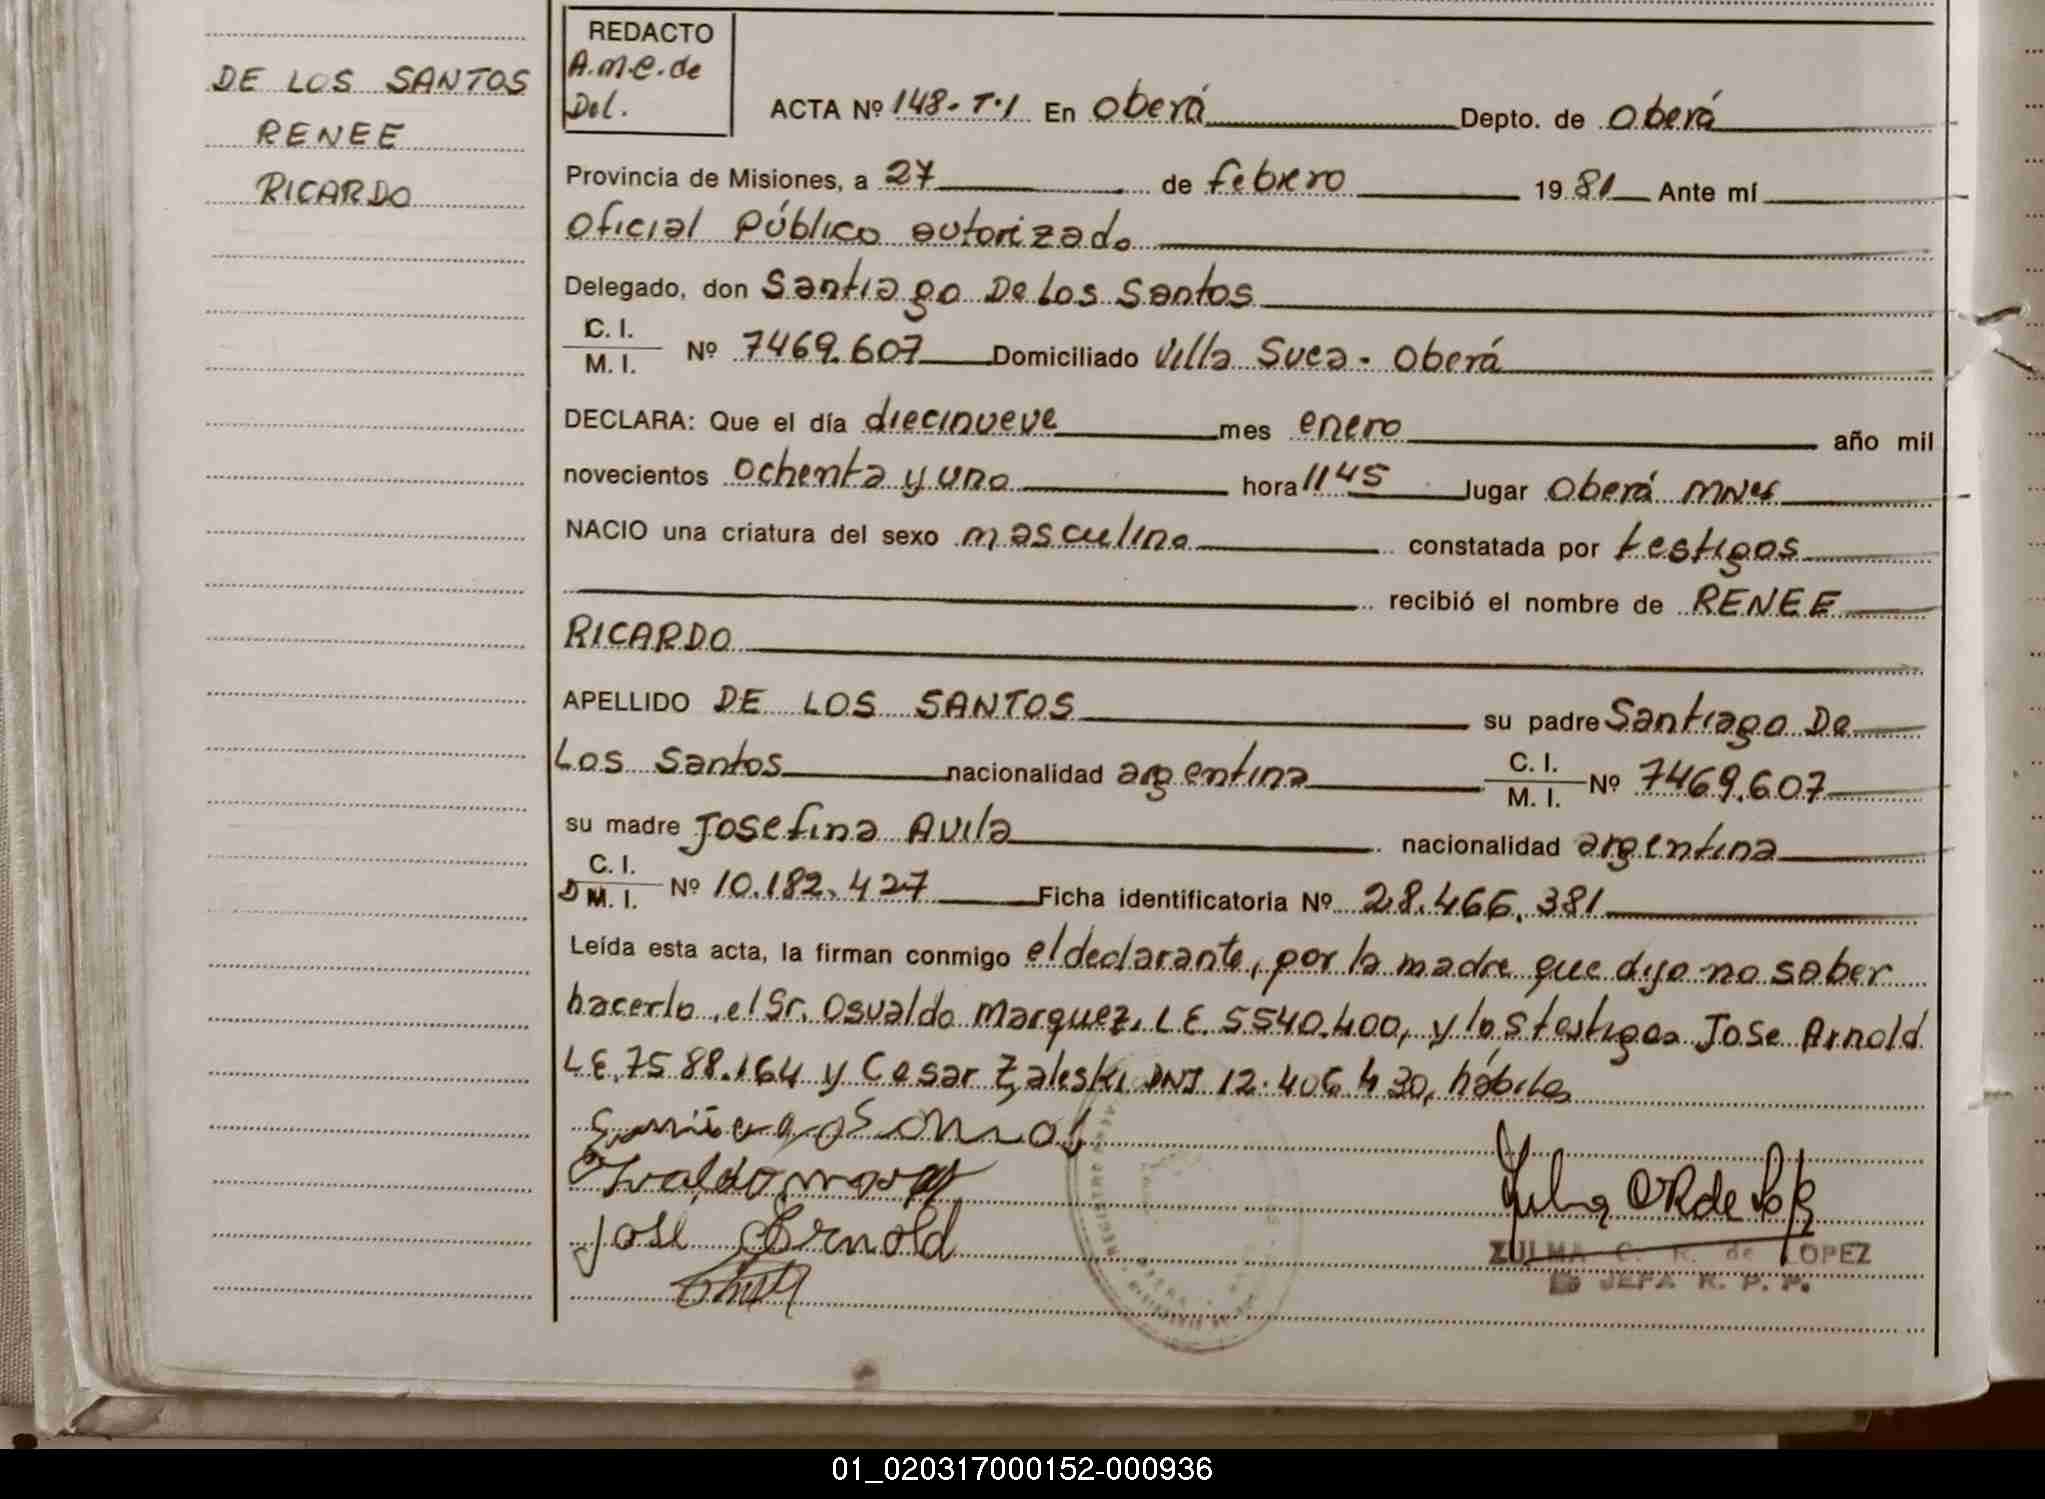 DE LOS SANTOS
RENEE
RICARDO
REDACTO
A.M.C. de
Del.
ACTA Nº 148-T.1 En Oberá Depto. de Oberá
Provincia de Misiones, a 27 de febrero 1981 Ante mí
Oficial Público autorizado
Delegado, don Santiago De Los Santos
C. I.
M. I. Nº 7469.607 Domiciliado Villa Svea - Oberá
DECLARA: Que el día diecinueve mes enero año mil
novecientos ochenta y uno hora 1145 lugar Oberá Mnes
NACIO una criatura del sexo masculino constatada por testigos
recibió el nombre de RENEE
RICARDO
APELLIDO DE LOS SANTOS su padre Santiago De
Los Santos nacionalidad argentina C. I. M. I. Nº 7469.607
su madre Josefina Avila nacionalidad argentina
C. I.
D M. I. Nº 10.182.427 Ficha identificatoria Nº 28.466.381
Leída esta acta, la firman conmigo el declarante, por la madre que dijo no saber
hacerlo, el Sr. Osvaldo Marquez, LE. 5540.400, y los testigos Jose Arnold
LE. 7588.164 y Cesar Zaleski DNI 12.406.430, hábiles
Jose Arnold
ZULMA C. R. de LOPEZ
JEFA R. P. P.
01_020317000152-000936